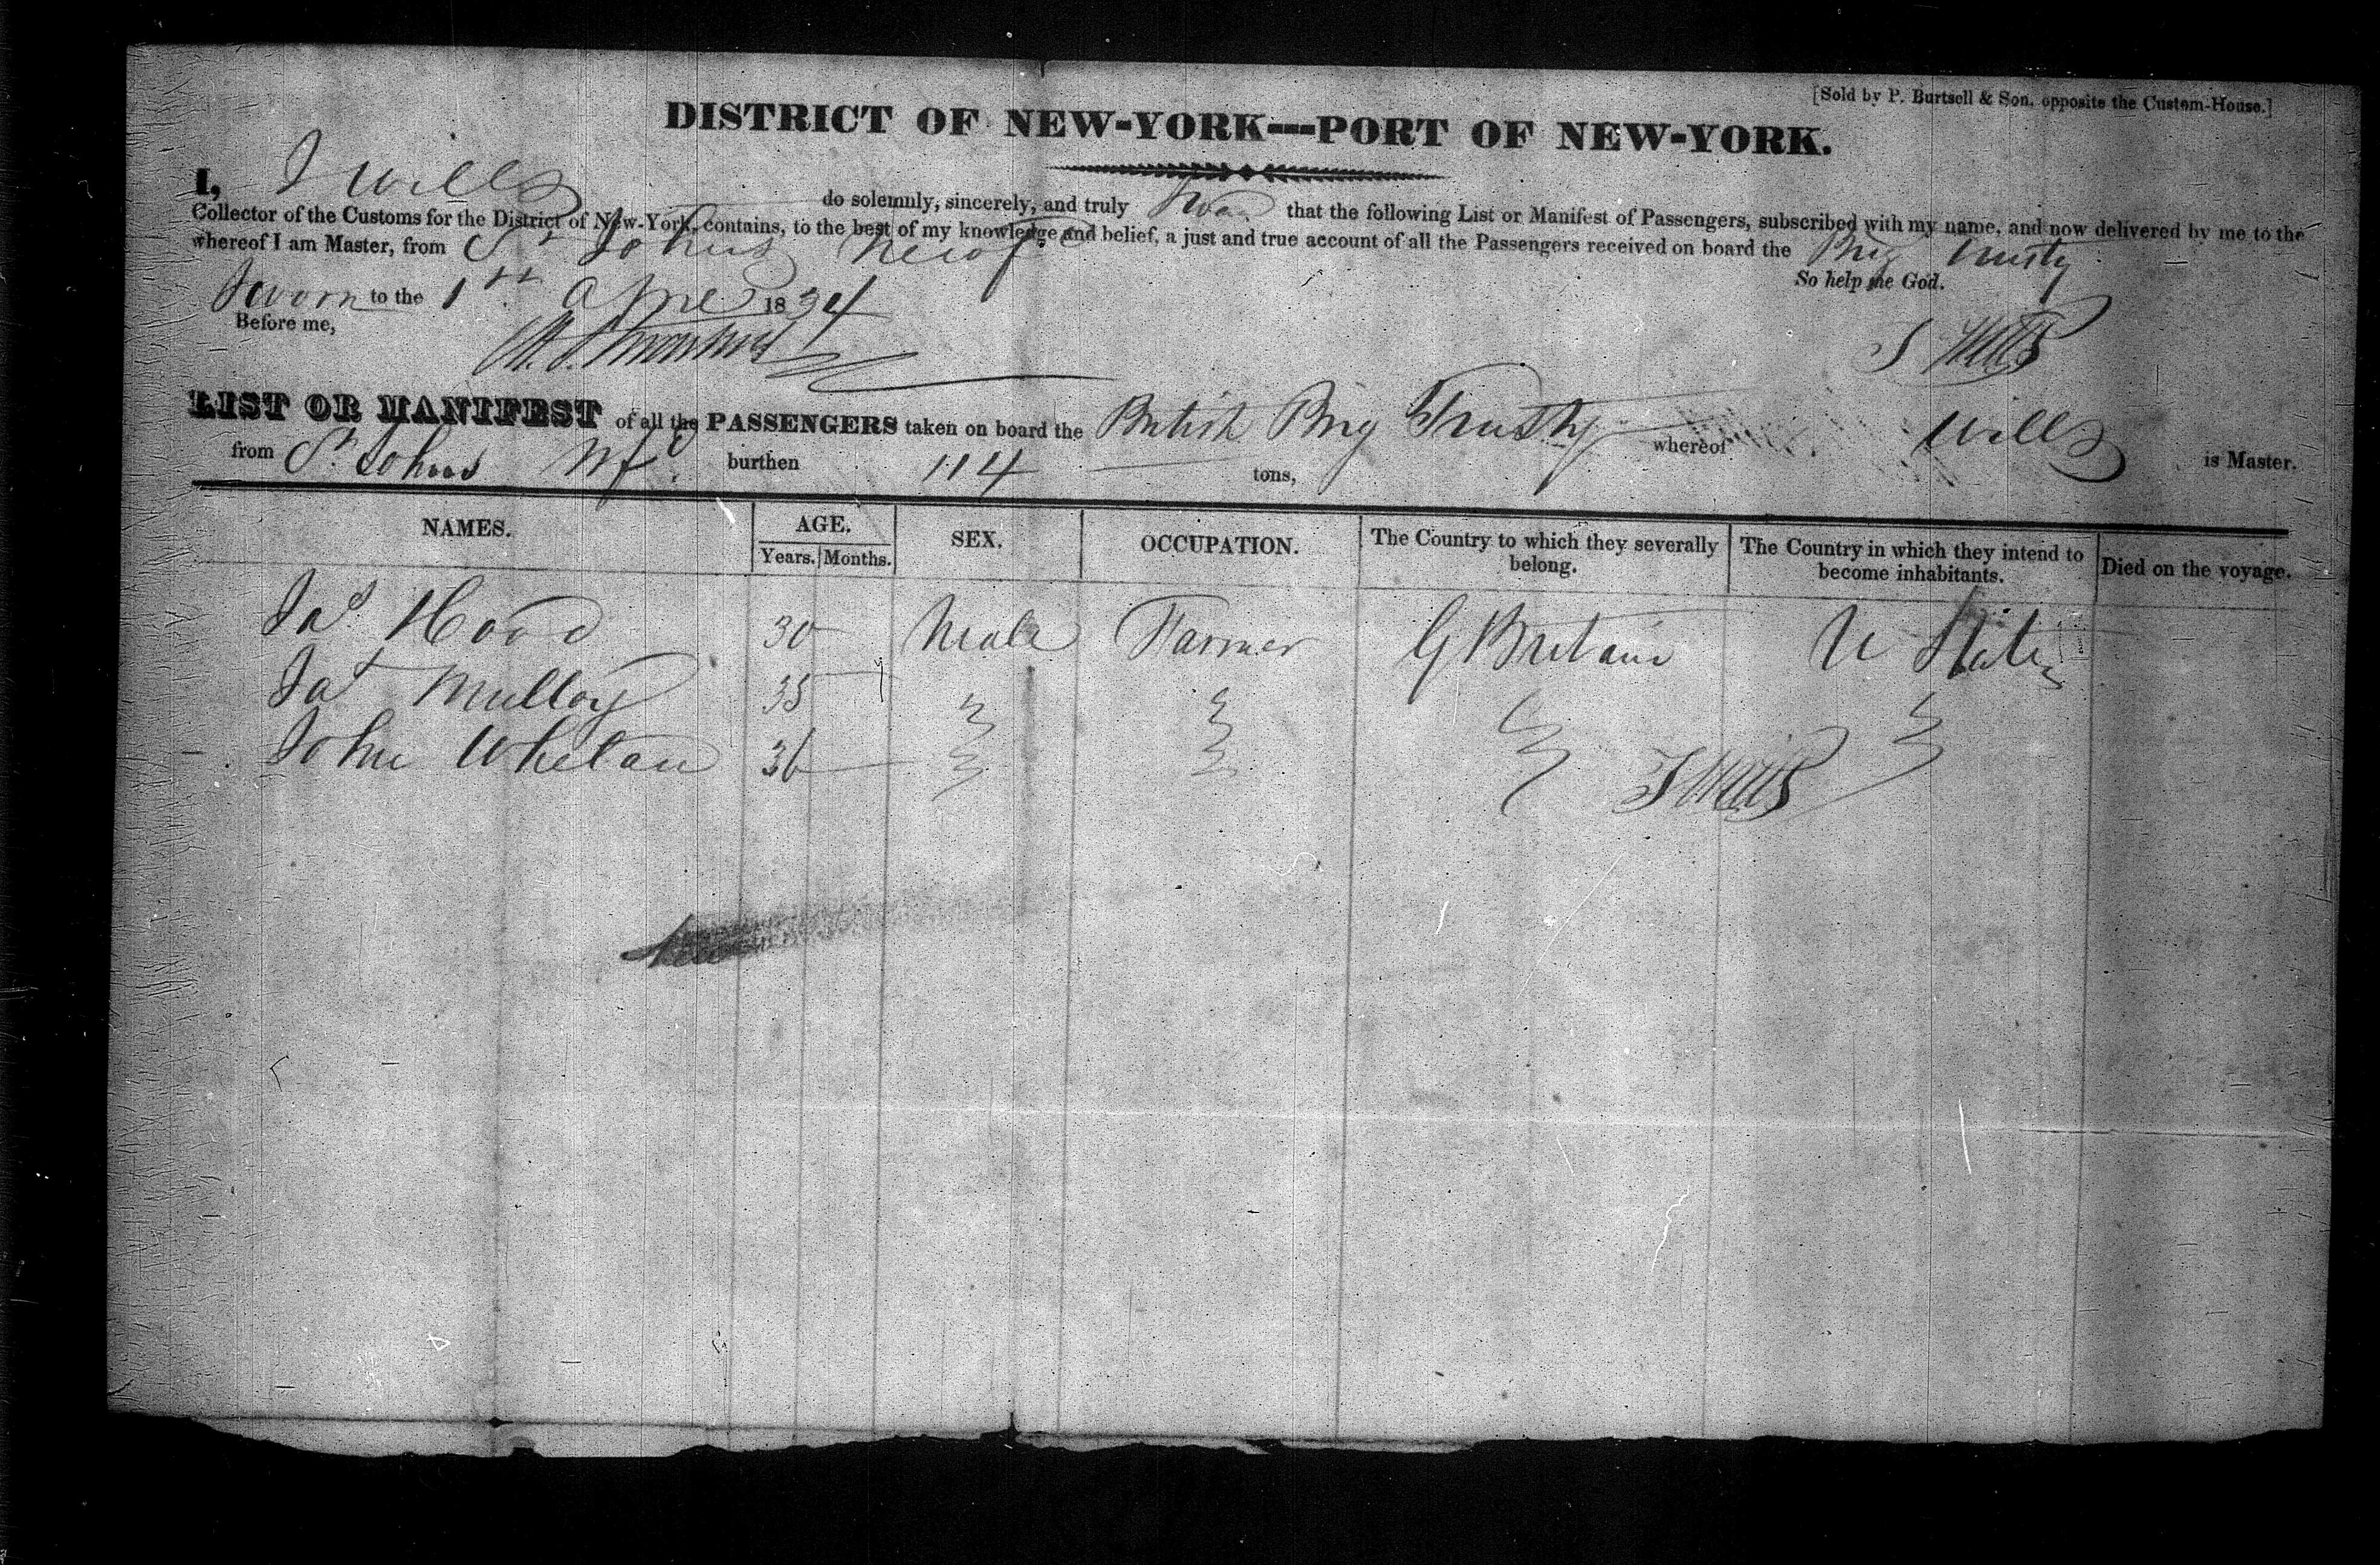 [Sold by P. Burtsell & Son, opposite the Custom-House.]
DISTRICT OF NEW-YORK—PORT OF NEW-YORK.
I, J Wills do solemnly, sincerely, and truly Swear that the following List or Manifest of Passengers, subscribed with my name, and now delivered by me to the
Collector of the Customs for the District of New-York, contains, to the best of my knowledge and belief, a just and true account of all the Passengers received on board the Brig Trusty
whereof I am Master, from St Johns Newf
So help me God.
Sworn to the 1st April 1834
Before me,
J Wills
LIST OR MANIFEST of all the PASSENGERS taken on board the British Brig Trusty whereof Wills is Master.
from St Johns Nfd burthen 114 tons,
NAMES. AGE. SEX. OCCUPATION. The Country to which they severally belong. The Country in which they intend to become inhabitants. Died on the voyage.
Years. Months.
Jas Hood 30 Male Farmer G Britain U States
Jas Mulloy 35
John Whelan 36
J Wills